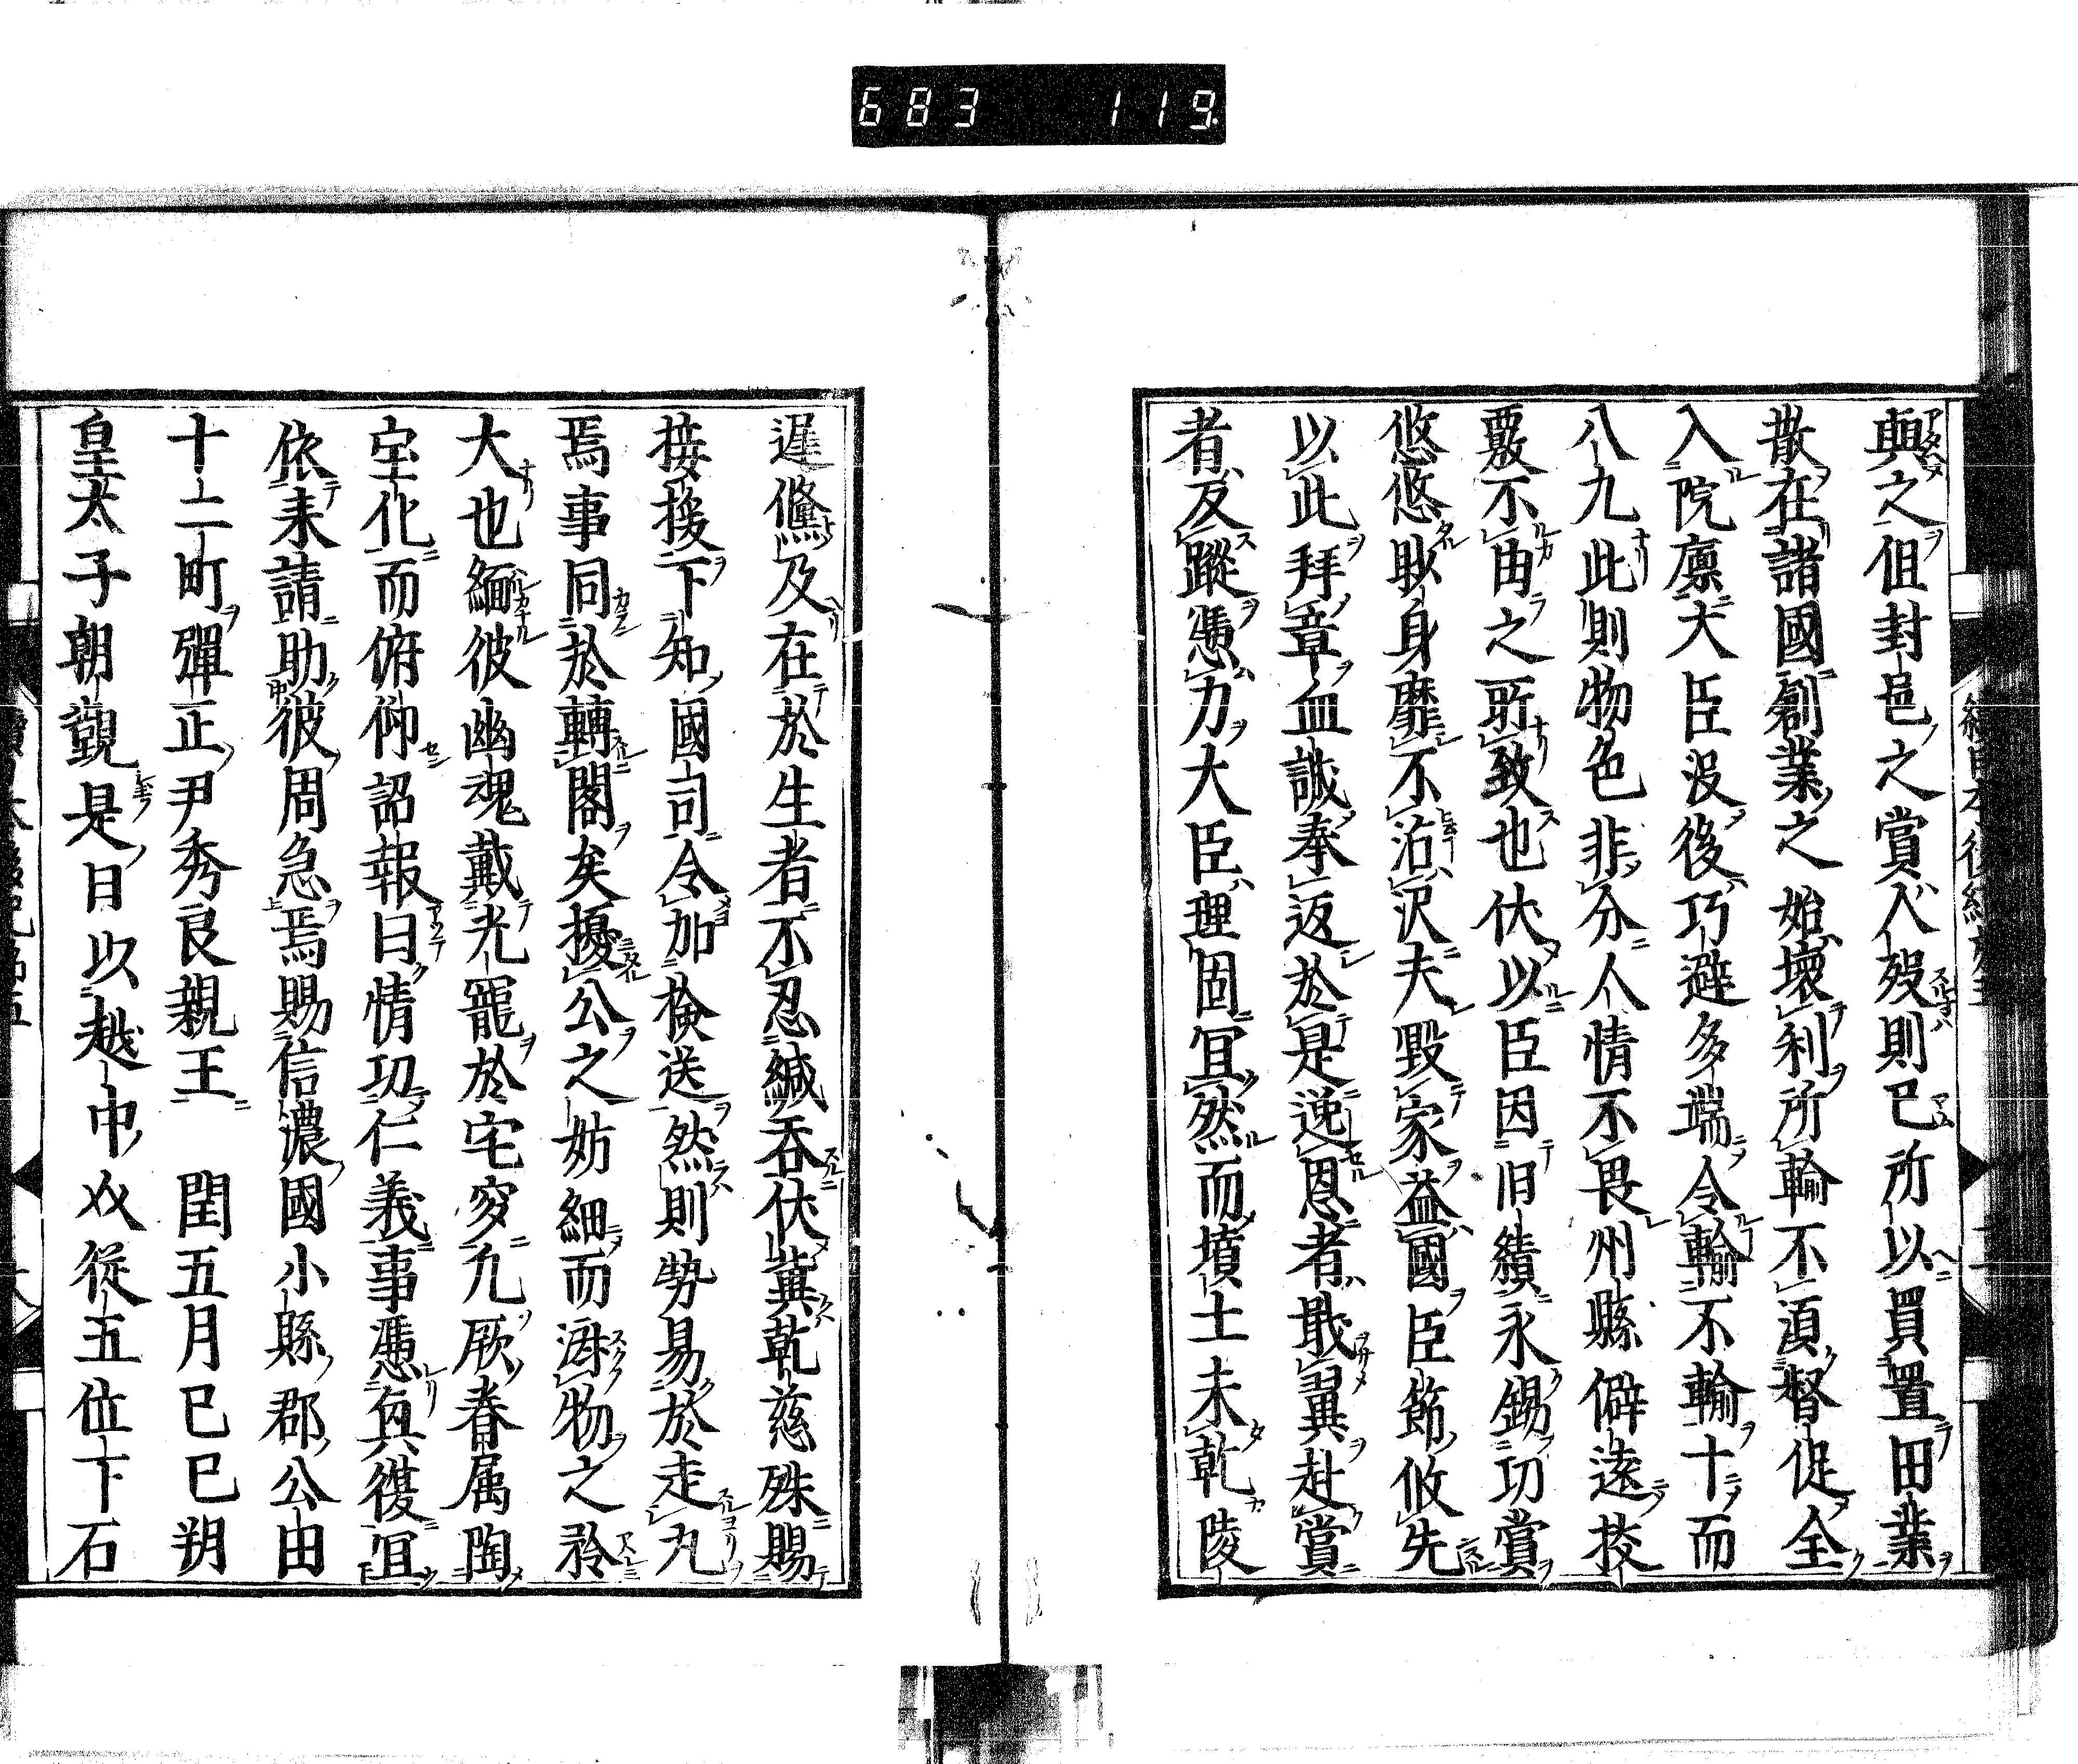 683 119
與之但封邑之賞人歿則已所以買置田業
散在諸國創業之始壞利所輸不湏督促全
入院廪大臣沒後巧避多端令輸不輸十而
八九此則物色非分人情不畏州縣僻遠挍
覈不由之所致也伏以臣因旧績永錫功賞
悠悠耿身靡不沾沢夫毀家益國臣節攸先
以此拜章血誠奉返於是逸恩者戢翼赴賞
者反蹤憑力大臣理固冝然而墳土未乾陵
遅儵及在於生者不忍緘呑伏冀乾慈殊賜
接援下知國司令加検送然則勢易於走丸
焉事同於轉閣矣擾公之妨細而済物之矜
大也緬彼幽魂戴光寵於宅穸凢厥眷属陶
室化而俯仰詔報曰情切仁義事憑与復冝
依来請助彼周急焉賜信濃國小縣郡公田
十二町彈正尹秀良親王 閏五月巳巳朔
皇太子朝覲是日以越中以従五位下石